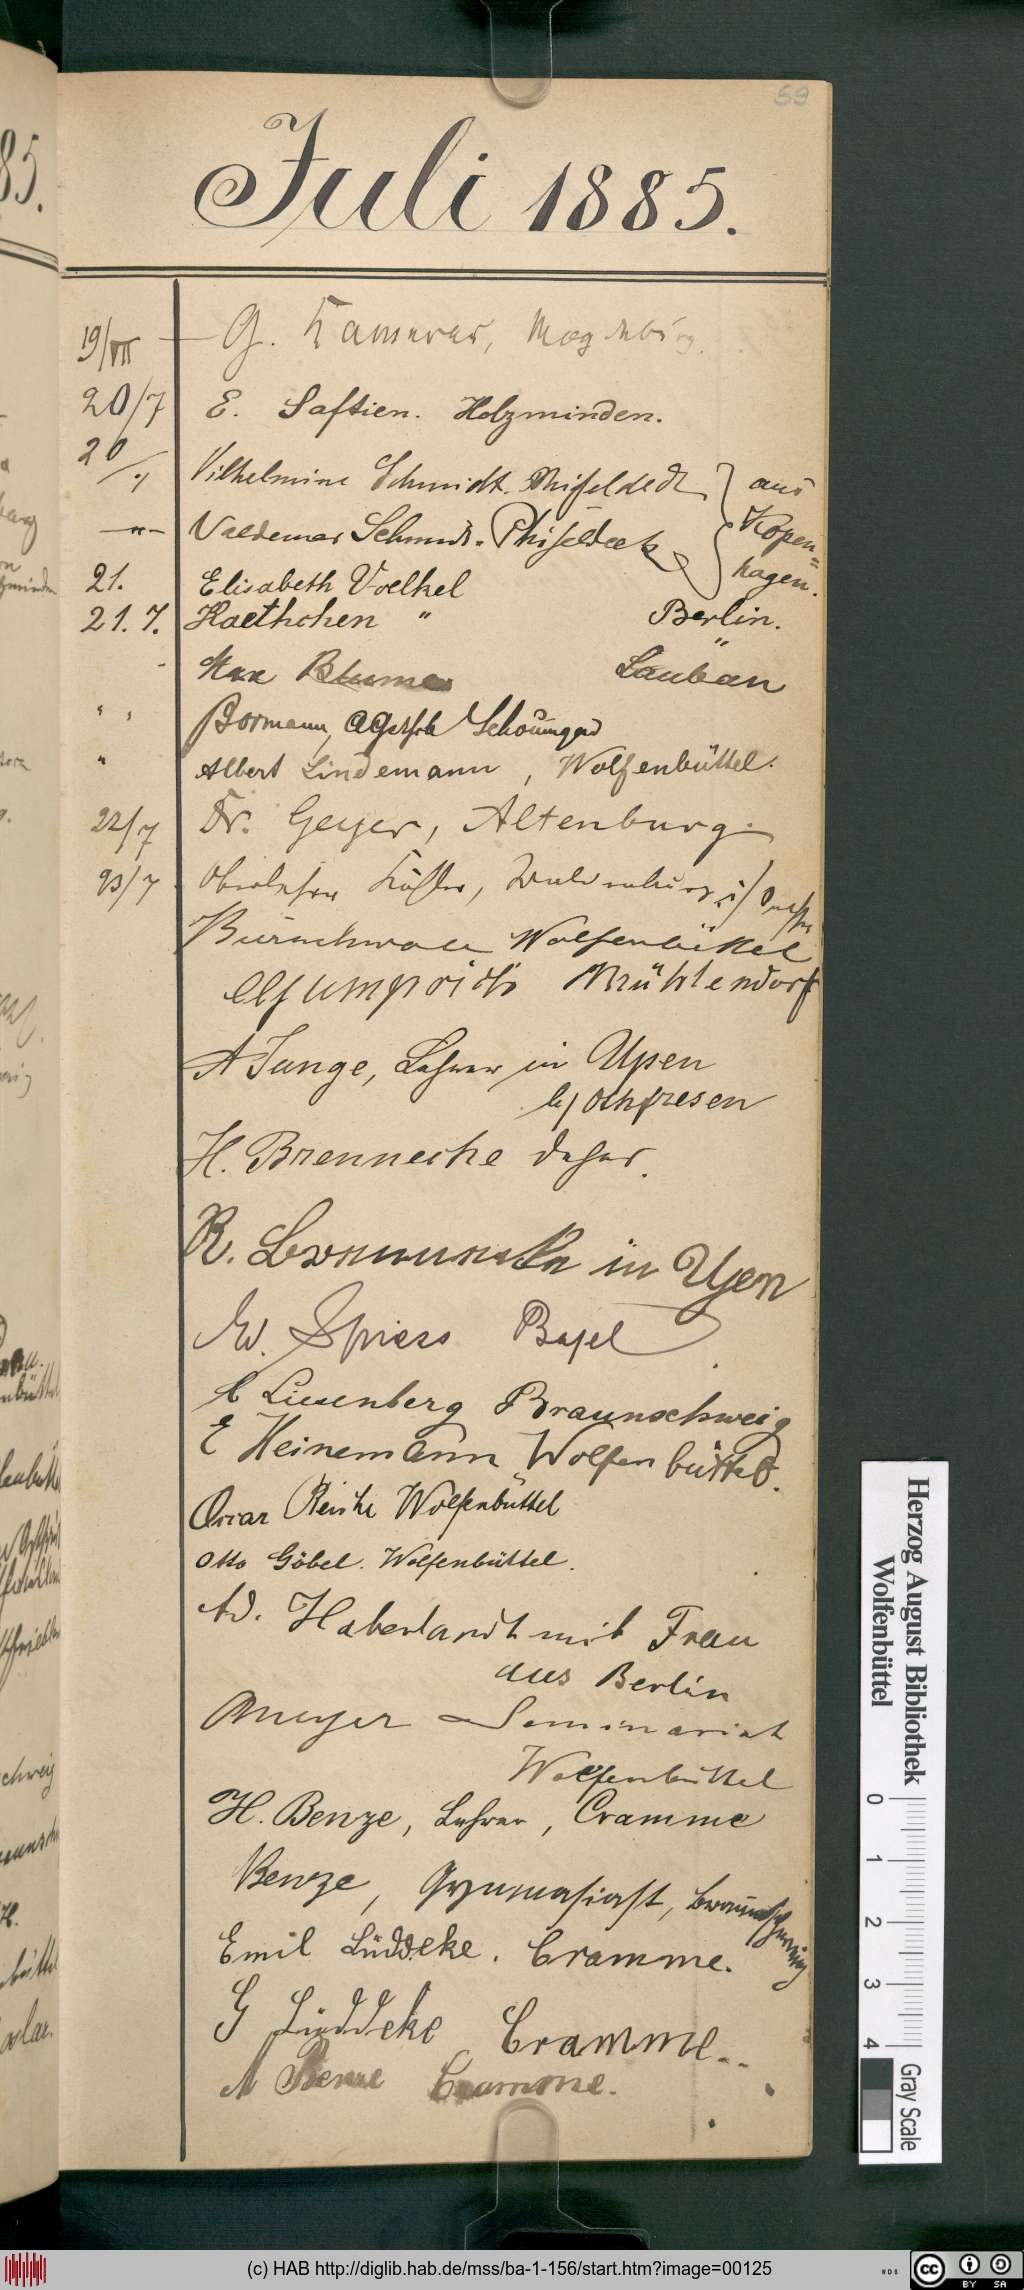 59
Juli 1885.
19/VII G. Kammerer, Magdeburg.
20/7 E. Saftien. Holzminden.
20/7 Vilhelmine Schmidt. Phiseldeck } aus
—"— Valdemar Schmidt-Phiseldeck } Kopen=
hagen.
21. Elisabeth Voelkel
21. 7. Kaethchen " Berlin.
Max Blume " Lauban
" Bormann,
" Albert Lindemann, Wolfenbüttel.
22/7 Dr. Geyer, Altenburg.
23/7 Oberlehrer Köhler,
Wolfenbüttel
A Junge, Lehrer in Upen
b/ Othfresen
H. Brennecke daher.
R. in Upen
Ed. Spiess Basel
C Liesenberg Braunschweig
E Heinemann Wolfenbüttel.
Oscar Reiche Wolfenbüttel
Otto Göbel. Wolfenbüttel.
Ad. Haberlandt mit Frau
aus Berlin
Meyer Seminarist
Wolfenbüttel
H. Benze, Lehrer, Cramme
Benze, Gymnasiast, Braunschweig
Emil Lüddeke. Cramme.
G Lüddeke Cramme..
A Benze Cramme.
Herzog August Bibliothek
Wolfenbüttel
0 1 2 3 4
Gray Scale
(c) HAB http://diglib.hab.de/mss/ba-1-156/start.htm?image=00125
WDB
cc BY SA